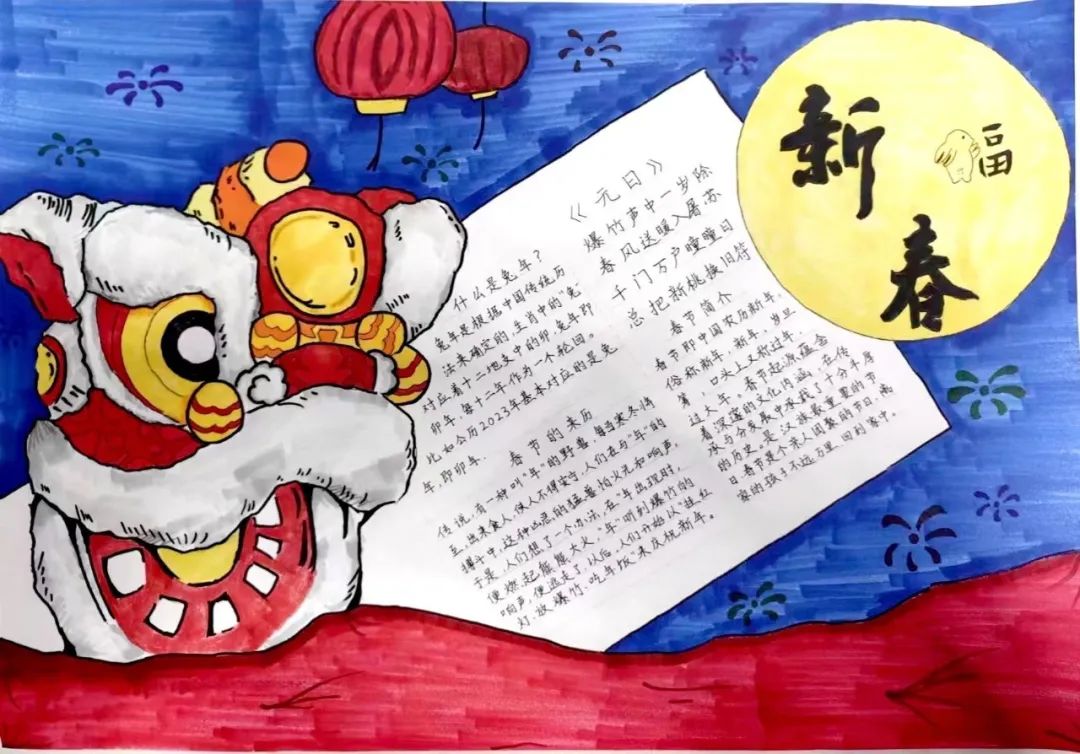 新
春
福
什么是兔年?
兔年是根据中国传统历
法来确定的,生肖中的"兔"
对应着十二地支中的卯,兔年即
卯年,每十二年作为一个轮回。
比如公历2023年基本对应的是兔
年,即卯年.
春节的来历
传说,有一种叫"年"的野兽,每当寒冬将
至,出来食人,使人不得安宁,人们在与"年"的
搏斗中,这种凶恶的猛兽怕火光和响声,
于是,人们想了一个办法,在"年"出现时,
便燃起熊熊大火,"年"听到爆竹的
响声,便逃走了,从后,人们开始从"挂红
灯、放爆竹、吃年饭"来庆祝新年。
《元日》
爆竹声中一岁除
春风送暖入屠苏
千门万户曈曈日
总把新桃换旧符
春节简介
春节即中国农历新年。
俗称新年,新年,岁旦
等,口头上又称过年、
过大年。春节起源蕴含
着深邃的文化内涵,在传
承与分发展中承载了十分丰厚
的历史。是汉族最重要的节
日,春节是个亲人团聚的节日,离
家的孩子不远万里,回到家中。